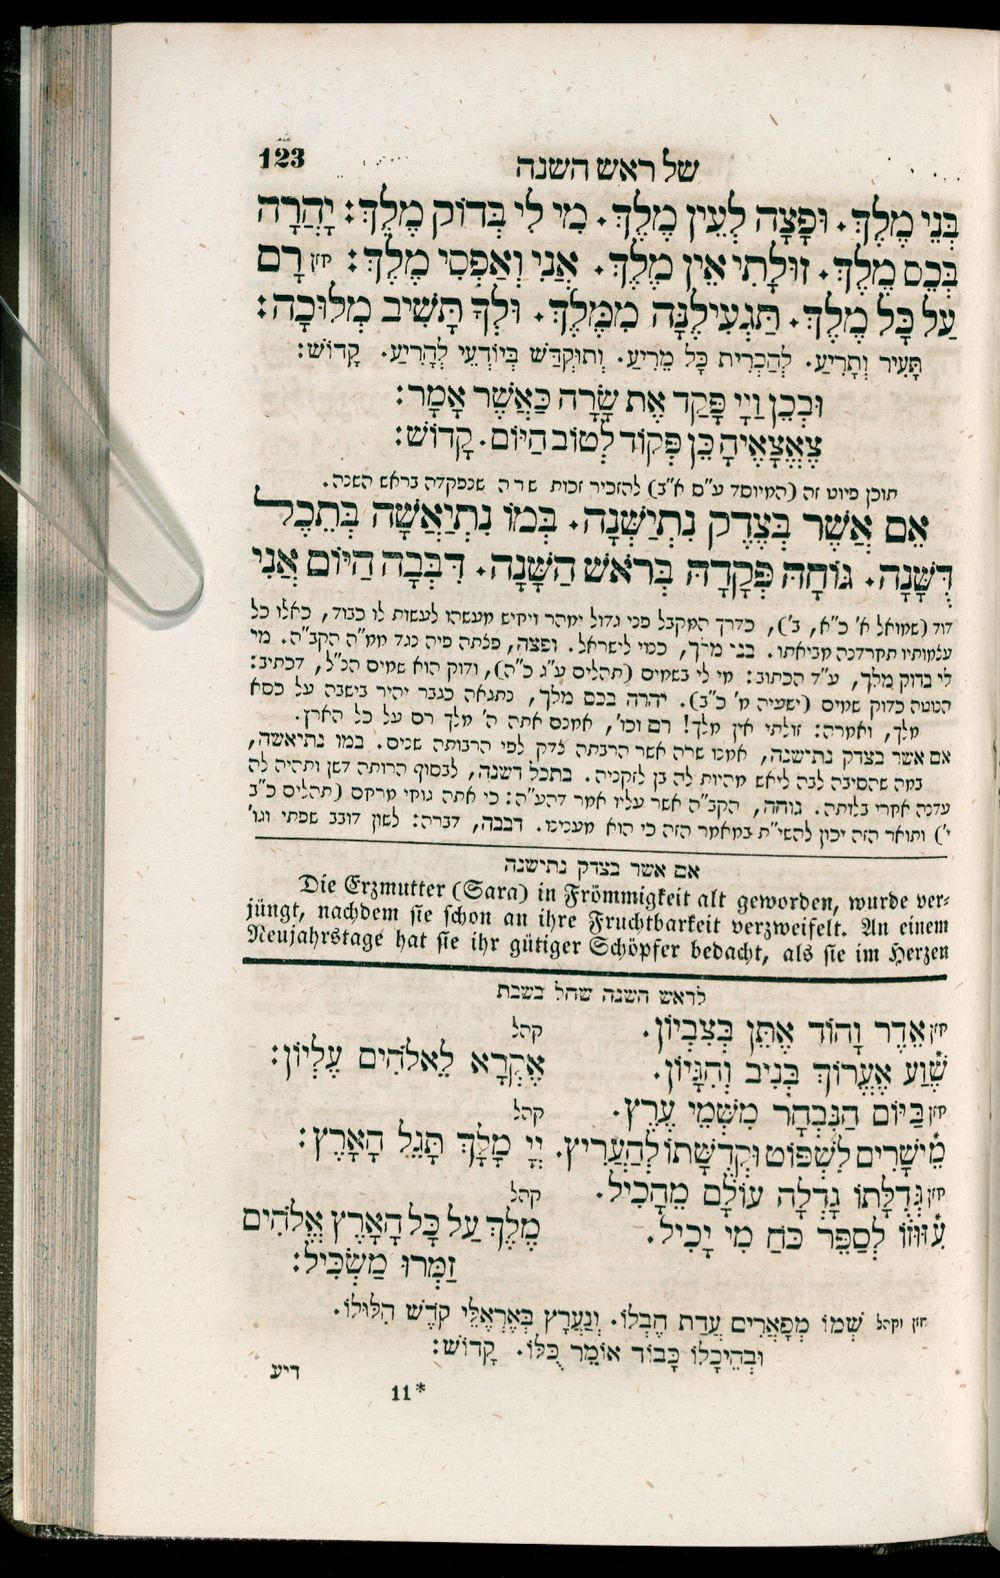 של ראש השנה 123
בְּנֵי מֶלֶךְ. וּפָצָה לְעֵין מֶלֶךְ. מִי לִי בְּדוֹק מֶלֶךְ: יָהֲרָה
בְּכֵס מֶלֶךְ. זוּלָתִי אֵין מֶלֶךְ. אֲנִי וְאַפְסִי מֶלֶךְ: חזן רָם
עַל כָּל מֶלֶךְ. תַּגְעִילֶנָּה מִמֶּלֶךְ. וּלְךָ תָּשִׁיב מְלוּכָה:
תָּעִיר וְתָרִיעַ. לְהַכְרִית כָּל מֵרִיעַ. וְתוּקְדַּשׁ בְּיוֹדְעֵי לְהָרִיעַ. קָדוֹשׁ:
וּבְכֵן וַיְיָ פָּקַד אֶת שָׂרָה כַּאֲשֶׁר אָמָר:
צֶאֱצָאֶיהָ כֵּן פְּקוֹד לְטוֹב הַיּוֹם. קָדוֹשׁ:
תוכן פיוט זה (המיוסד ע"ס א"ב) להזכיר זכות שרה שנפקדה בראש השנה.
אֵם אֲשֶׁר בְּצֶדֶק נִתְיַשְּׁנָה. בְּמוֹ נִתְיַאֲשָׁה בְּתֵכֶל
דֻּשָּׁנָה. גּוֹחָהּ פְּקָדָהּ בְּרֹאשׁ הַשָּׁנָה. דִּבְּבָה הַיּוֹם אֲנִי
דוד (שמואל א' כ"א, ב'), כדרך המקבל פני גדול ימהר ויחיש מעשהו לעשות לו כבוד, כאלו כל
עלמותיו תחרדנה מביאתו. בני מלך, כנוי לישראל. ופצה, פתחה פיה נגד ממ"ה הקב"ה. מי
לי בדוק מלך, ע"ד הכתוב: מי לי בשמים (תהלים ע"ג כ"ה), ודוק הוא שמים הנ"ל, דכתיב:
הנוטה כדוק שמים (ישעיה מ' כ"ב). יהרה בכס מלך, נתגאה כגבר יהיר בישבה על כסא
מלך, ואמרה: זולתי אין מלך! רם וכו', אמנם אתה ה' מלך רם על כל הארץ.
אם אשר בצדק נתישנה, אמנו שרה אשר הרבתה צדק לפי הרבותה שנים. במו נתיאשה,
במה שהסיבה לבה ליאש מהיות לה בן לזקניה. בתכל דשנה, לבסוף הרותה דשן ותהיה לה
עדנה אחרי בלותה. גוחה, הקב"ה אשר עליו אמר דהע"ה: כי אתה גוחי מרחם (תהלים כ"ב
י') ותואר הזה יכון להשי"ת במאמר הזה כי הוא מעניננו. דבבה, דברה: לשון דובב שפתי וגו'
אם אשר בצדק נתישנה
Die Erzmutter (Sara) in Frömmigkeit alt geworden, wurde ver-
jüngt, nachdem sie schon an ihre Fruchtbarkeit verzweifelt. An einem
Neujahrstage hat sie ihr gütiger Schöpfer bedacht, als sie im Herzen
לראש השנה שחל בשבת
חזן אֶדֶר וָהוֹד אֶתֵּן בְּצִבְיוֹן. קהל
שֶׁוַע אֶעֱרוֹךְ בְּנִיב וְהִגָּיוֹן. אֶקְרָא לֵאלֹהִים עֶלְיוֹן:
חזן בַּיּוֹם הַנִּבְחָר מִשְּׁמֵי עֶרֶץ. קהל
מֵישָׁרִים לִשְׁפּוֹט וּקְדֻשָּׁתוֹ לְהַעֲרִיץ. יְיָ מָלָךְ תָּגֵל הָאָרֶץ:
חזן גְּדֻלָּתוֹ גָדְלָה עוֹלָם מֵהָכִיל. קהל
עִזּוּזוֹ לְסַפֵּר כֹּחַ מִי יָכִיל. מֶלֶךְ עַל כָּל הָאָרֶץ אֱלֹהִים
זַמְּרוּ מַשְׂכִּיל:
חזן וקהל שְׁמוֹ מְפָאֲרִים עֲדַת חֶבְלוֹ. וְנַעֲרָץ בְּאֶרְאֶלֵּי קֹדֶשׁ הִלּוּלוֹ.
וּבְהֵיכָלוֹ כָּבוֹד אוֹמֵר כֻּלּוֹ. קָדוֹשׁ:
דיע
11*